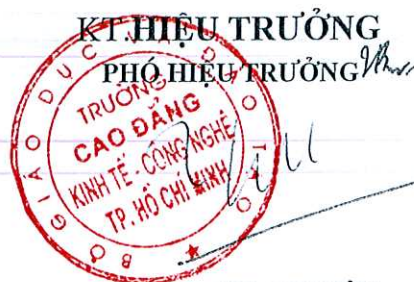 KT HIỆU TRƯỞNG
PHÓ HIỆU TRƯỞNG
BỘ GIÁO DỤC VÀ ĐÀO TẠO
TRƯỜNG
CAO ĐẲNG
KINH TẾ - CÔNG NGHỆ
TP. HỒ CHÍ MINH